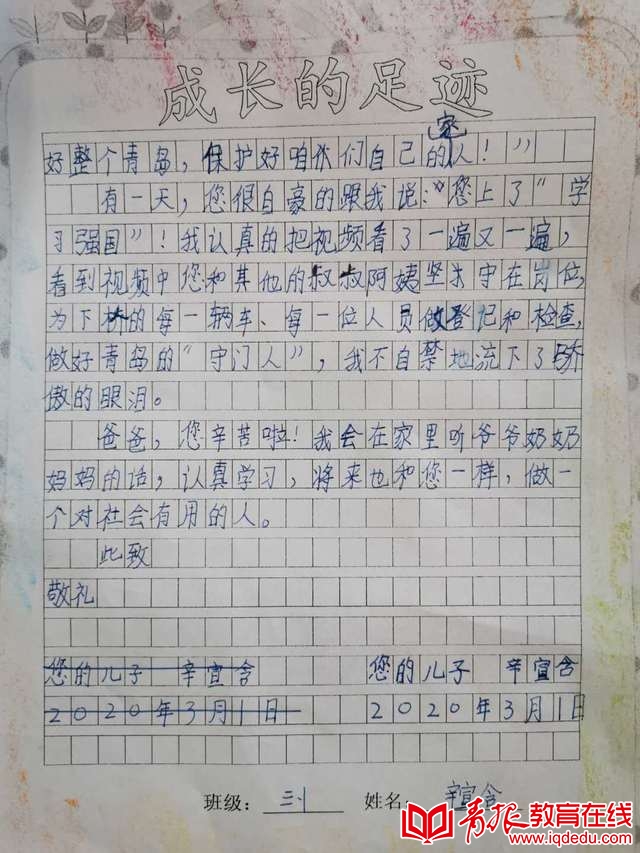 成长的足迹
好整个青岛，保护好咱你们自己的家人！”
有一天，您很自豪的跟我说：“您上了“学
习强国”！我认真的把视频看了一遍又一遍，
看到视频中您和其他的叔叔阿姨坚守在岗位，
为下桥的每一辆车、每一位人员做登记和检查，
做好青岛的“守门人”，我不自禁地流下了骄
傲的眼泪。
爸爸，您辛苦啦！我会在家里听爷爷奶奶
妈妈的话，认真学习，将来也和您一样，做一
个对社会有用的人。
此致
敬礼
您的儿子 辛宜含 您的儿子 辛宜含
2020年3月1日 2020年3月1日
班级： 姓名：辛宜含
青报教育在线
www.iqdedu.com